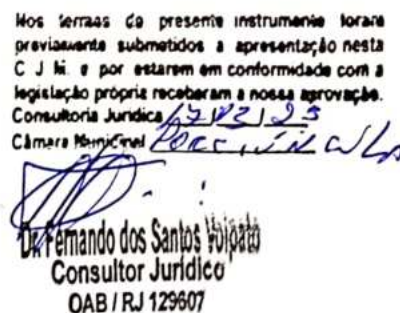 Nos termos do presente instrumento foram
previamente submetidos a apresentação nesta
C J M. e por estarem em conformidade com a
legislação própria receberam a nossa aprovação.
Consultoria Jurídica 17/02/23
Câmara Municipal Porciúncula
Dr. Fernando dos Santos Volpato
Consultor Jurídico
OAB / RJ 129607